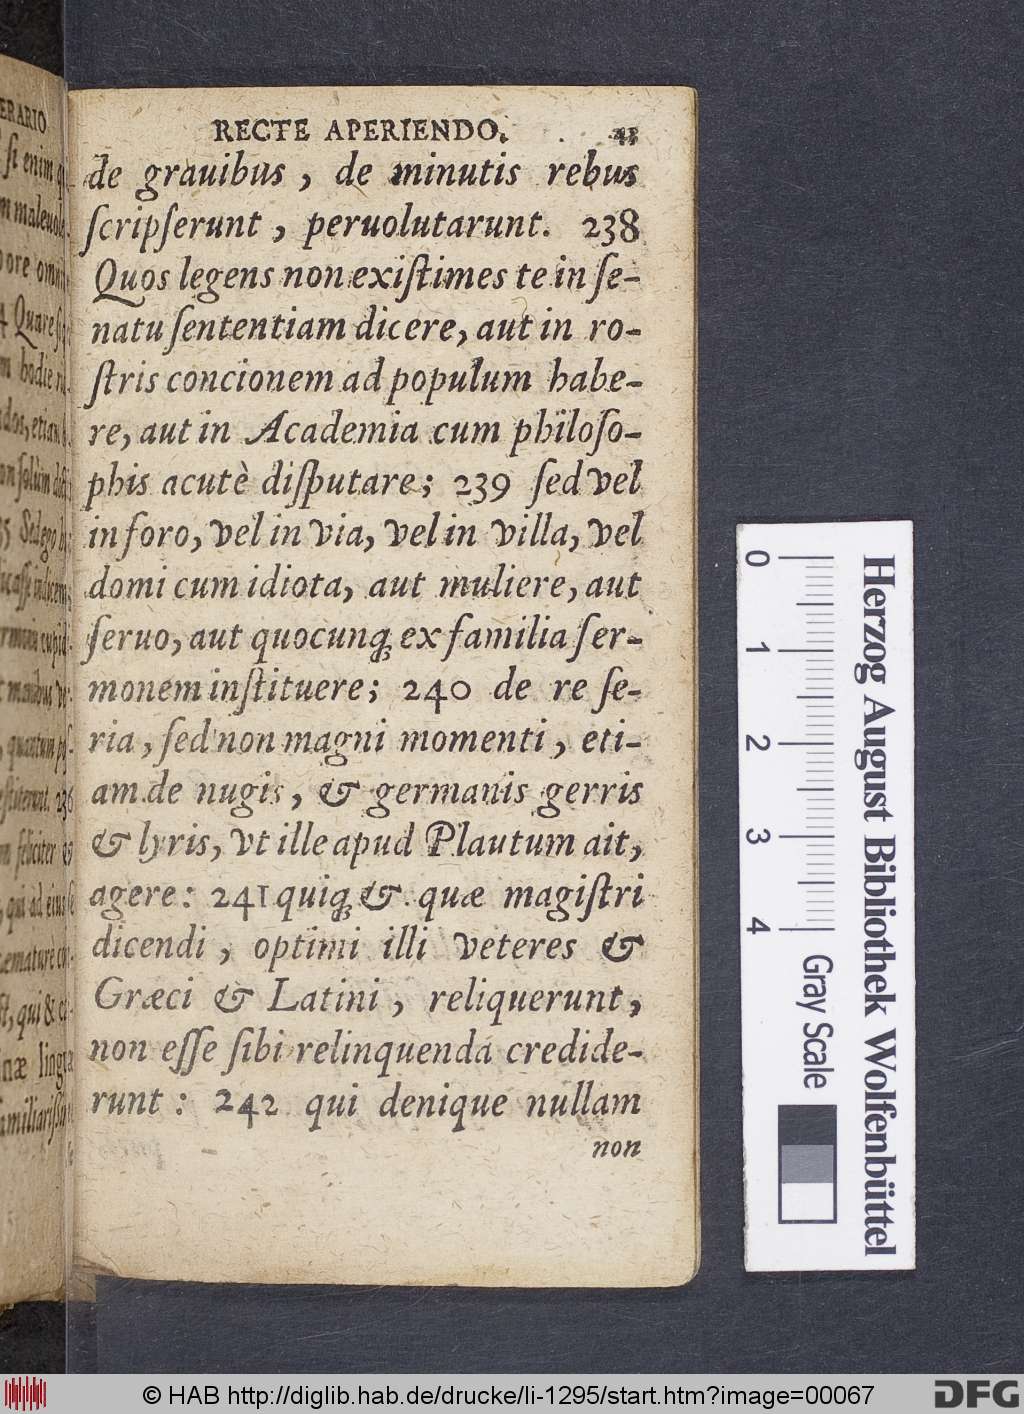 ERARIO
si enim
m maleuol
pore omni
4 Quare si
m hodie
dos, etiam
on solùm
35 Sed ego
indicem
cupid
manibus
quantum
236
feliciter &
qui ad eius
st, qui &
næ lingu
RECTE APERIENDO. 43
de grauibus, de minutis rebus
ſcripſerunt, peruolutarunt. 238
Quos legens non exiſtimes te in ſe-
natu ſententiam dicere, aut in ro-
ſtris concionem ad populum habe-
re, aut in Academia cum philoſo-
phis acutè diſputare; 239 ſed vel
in foro, vel in via, vel in villa, vel
domi cum idiota, aut muliere, aut
ſeruo, aut quocunq; ex familia ſer-
monem inſtituere; 240 de re ſe-
ria, ſed non magni momenti, eti-
am de nugis, & germanis gerris
& lyris, vt ille apud Plautum ait,
agere: 241 quiq; & quæ magiſtri
dicendi, optimi illi veteres &
Græci & Latini, reliquerunt,
non eſſe ſibi relinquenda credide-
runt: 242 qui denique nullam
non
0 1 2 3 4
Gray Scale
Herzog August Bibliothek Wolfenbüttel
© HAB http://diglib.hab.de/drucke/li-1295/start.htm?image=00067
DFG